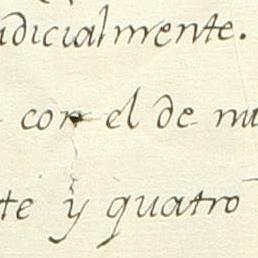 udicialmente.
con el de nu
te ÿ quatro